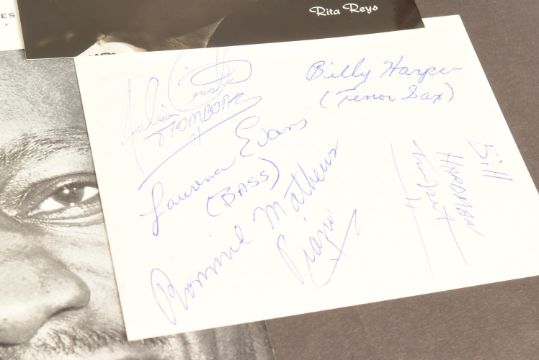 Rita Reys
Julian
TROMBONE
Billy Harper
(Tenor Sax)
Lawrence Evans
(BASS)
Ronnie Mathews
Piano
Bill
HARDMAN
Trumpet